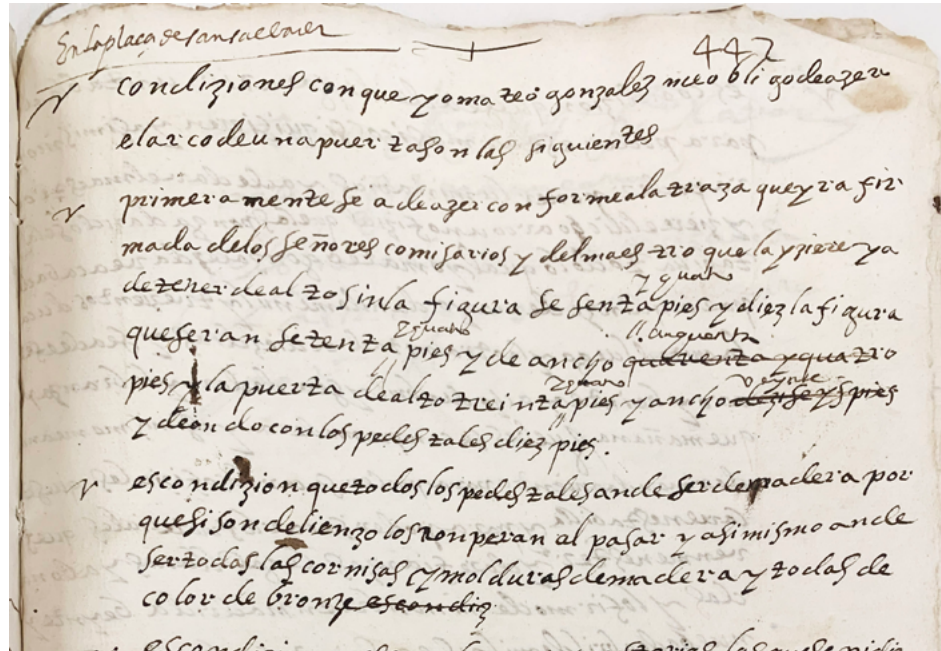 En la plaça de san salbador
442
condiziones con que yo mateo gonzales me obligo de azer
el arco de una puerta son las siguientes
primeramente se a de azer conforme a la traza que yra fir
mada de los señores comisarios y del maestro que la yziere y a
y quatro
de tener de alto sin la figura sesenta pies y diez la figura
y quatro cinquenta
que seran setenta pies y de ancho quarenta y quatro
y quatro veynte
pies y la puerta de alto treinta pies y ancho diez y seys pies
y de ondo con los pedestales diez pies.
es condizion que todos los pedestales an de ser de madera por
que si son de lienzo los ronperan al pasar y asi mismo an de
ser todas las cornisas y molduras de madera y todas de
color de bronze es condiz
es condizion